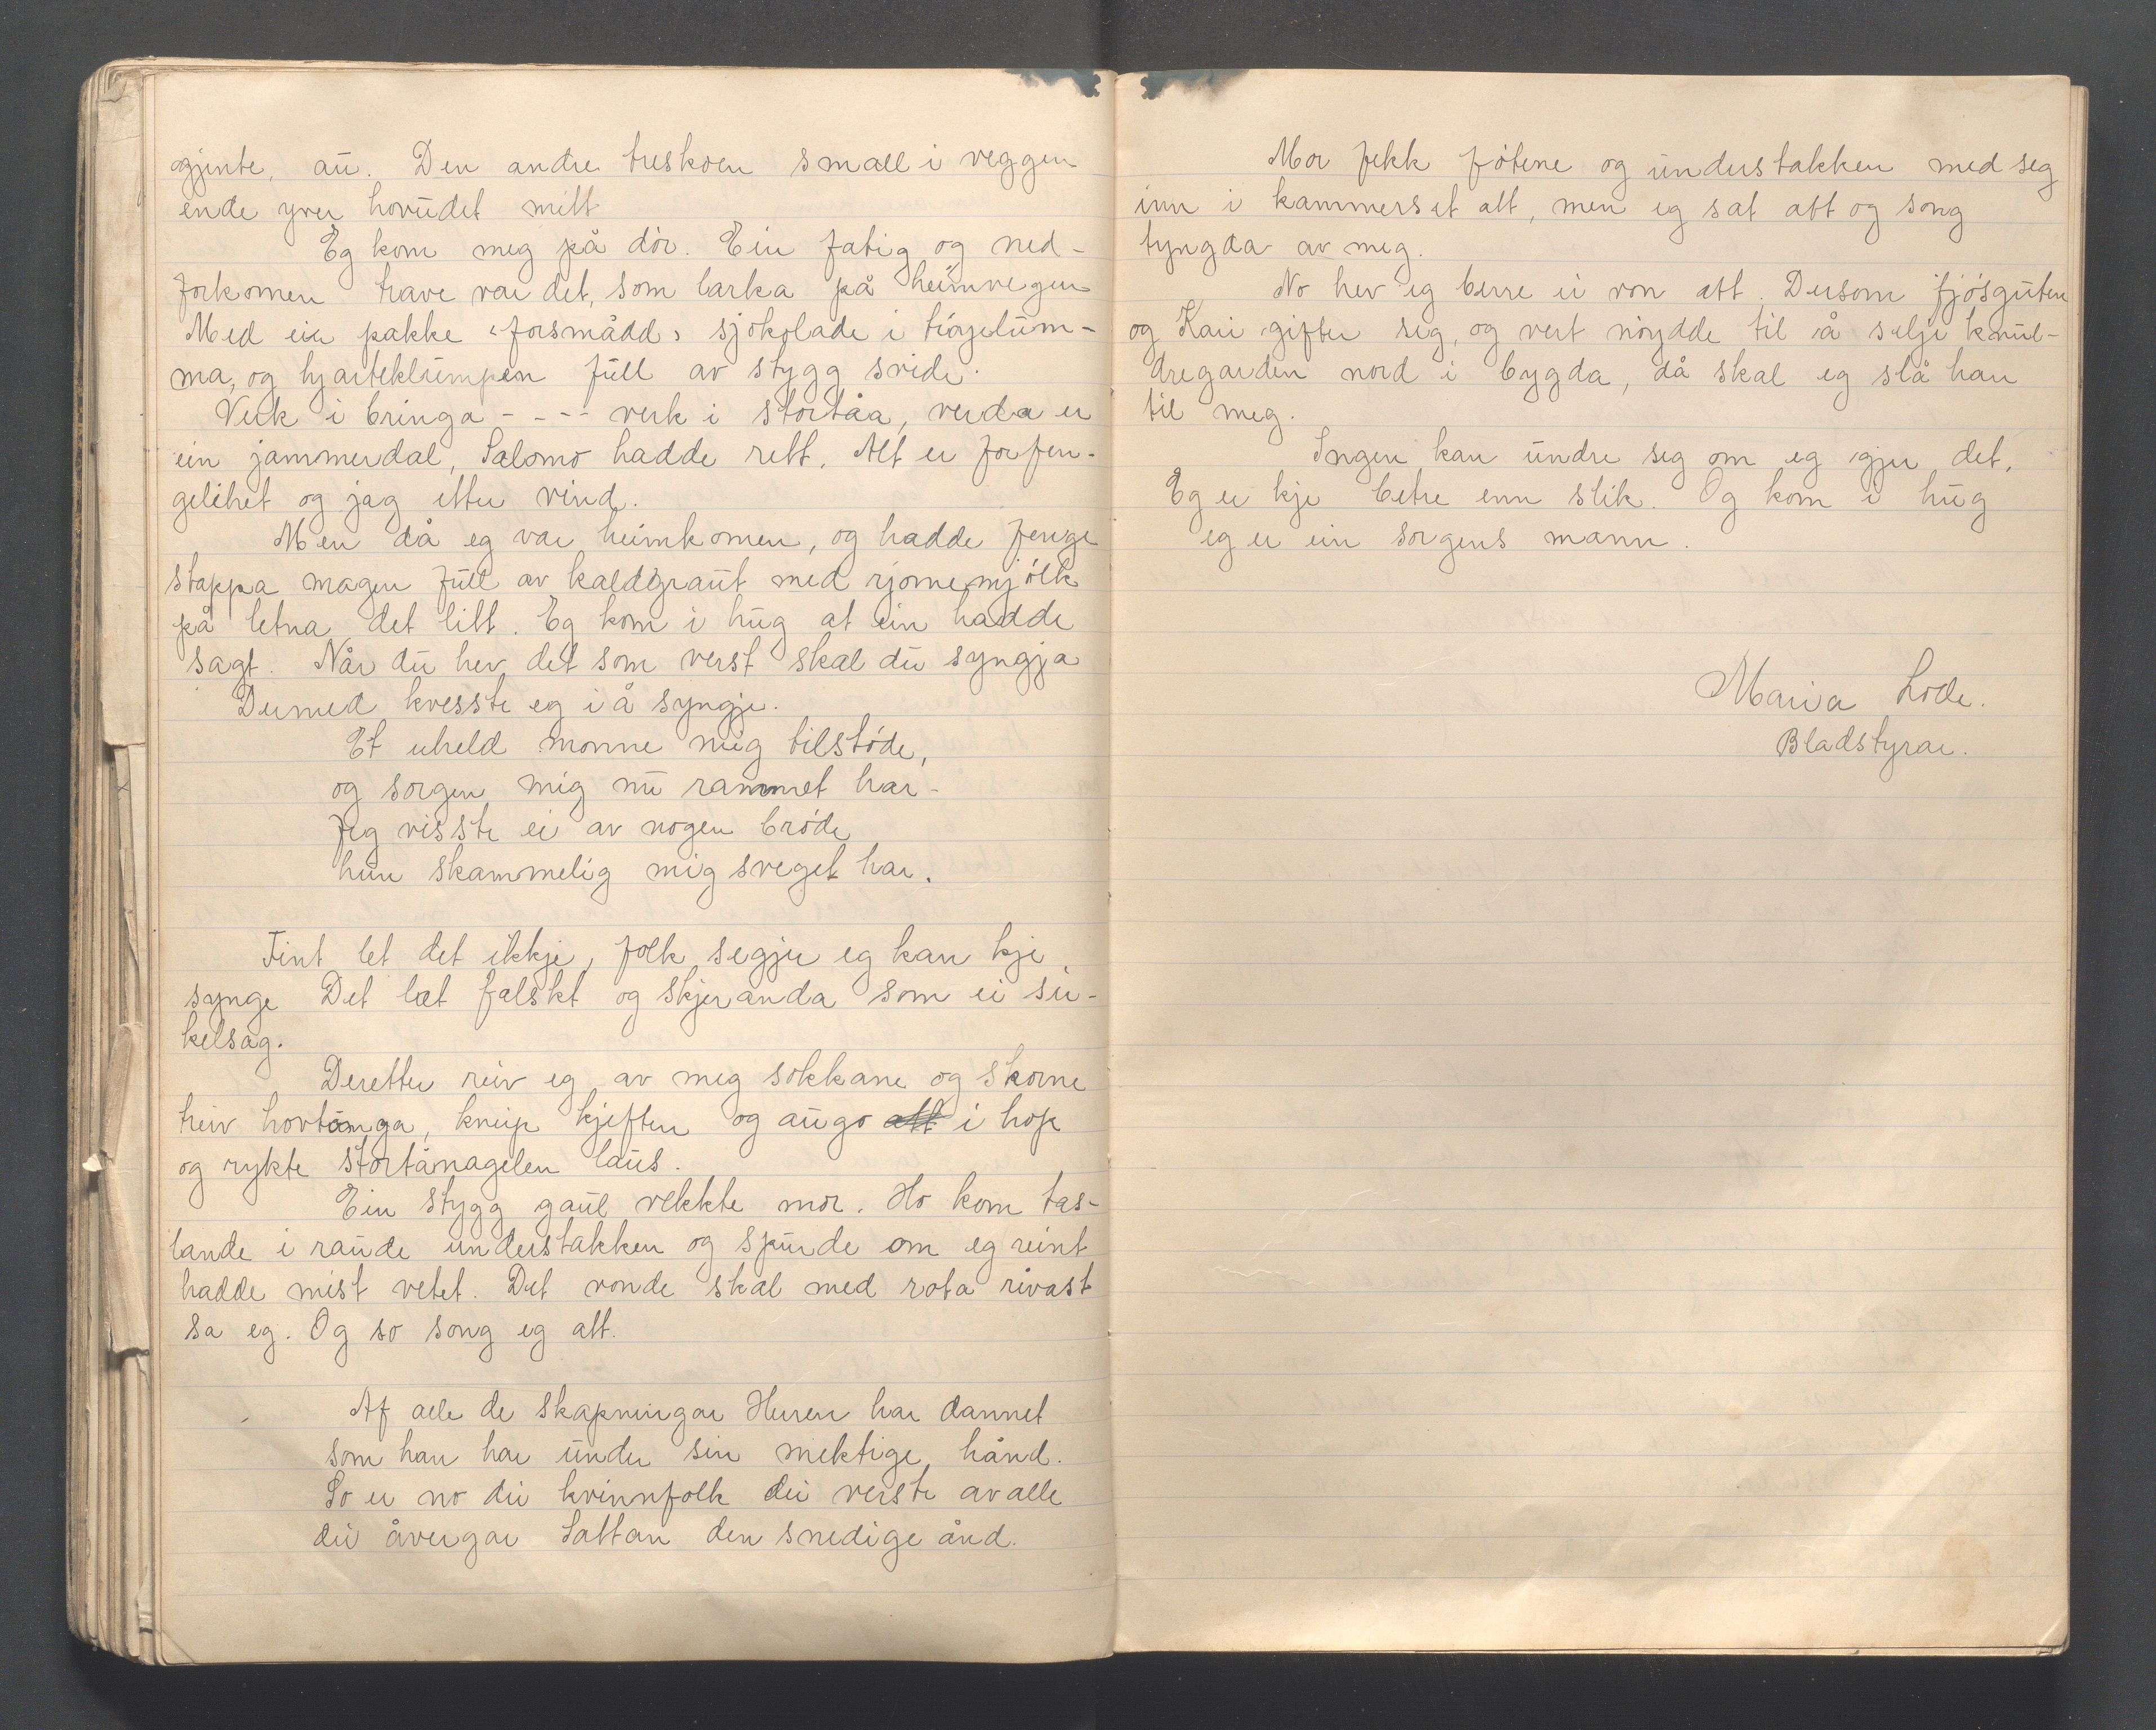 gjente, au. Den andre treskoen small i veggen
ende yver hovudet mitt
Eg kom meg på dör. Ein fatig og ned-
forkomen trave var det, som larka på heimvegen
Med ein pakke "forsmådd" sjokolade i tröyelum-
ma, og hjarteklumpen full av stygg svide.
Verk i bringa - - - - verk i stortåa, verda er
ein jammerdal, Salomo hadde rett. Alt er forfen-
gelihet og jag etter vind.
Men då eg var heimkomen, og hadde fenge
stappa magen full av kaldgraut med rjomemjölk
på letna det litt. Eg kom i hug at ein hadde
sagt. Når du hev det som verst skal du syngja
Dermed kvesste eg i å syngje.
Et uheld monne mig tilstöde,
og sorgen mig nu rammet har -
Jeg visste ei av nogen bröde
hun skammelig mig sveget har.
Fint let det ikkje, folk segjer eg kan kje
synge Det læt falskt og skjeranda som ei sir-
kelsag.
Deretter reiv eg av meg sokkane og skorne
treiv hovtonga, kneip kjeften og augo att i hop
og rykte stortånagelen laus.
Ein stygg gaul vekkte mor. Ho kom tas-
lande i raude understakken og spurde om eg reint
hadde mist vetet. Det vonde skal med rota rivast
sa eg. Og so song eg att.
Af alle de skapningar Herren har dannet
som han har under sin mektige hånd.
So er no dei kvinnfolk dei verste av alle
dei åvergar Sattan den snedige ånd.
Mor fekk fötene og understakken med seg
inn i kammerset att, men eg sat att og song
tyngda av meg.
No hev eg berre ei von att. Dersom fjösguten
og Kari gifter seg, og vert nöydde til å selje knul-
dregarden nord i bygda, då skal eg slå han
til meg.
Ingen kan undre seg om eg gjer det,
Eg er kje betre enn slik. Og kom i hug
eg er ein sorgens mann.
Maria Lode.
Bladstyrar.